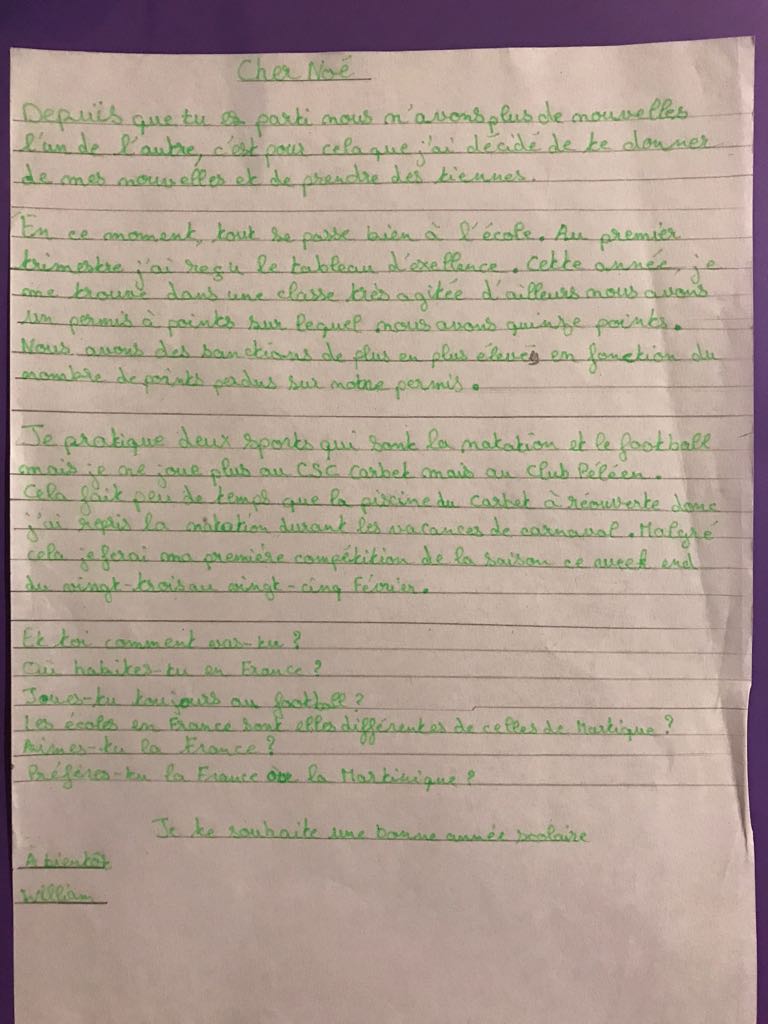 Cher Noé
Depuis que tu es parti nous n'avons plus de nouvelles
l'un de l'autre, c'est pour cela que j'ai décidé de te donner
de mes nouvelles et de prendre des tiennes.
En ce moment, tout se passe bien à l'école. Au premier
trimestre j'ai reçu le tableau d'exellence. Cette année, je
me trouve dans une classe très agitée d'ailleurs nous avons
un permis à points sur lequel nous avons quinze points.
Nous avons des sanctions de plus en plus élevés en fonction du
nombre de points perdus sur notre permis.
Je pratique deux sports qui sont la natation et le football
mais je ne joue plus au CSC Carbet mais au Club Péléen.
Cela fait peu de temps que la piscine du Carbet à réouverte donc
j'ai repris la natation durant les vacances de carnaval. Malgré
cela je ferai ma première compétition de la saison ce week end
du vingt-trois au vingt-cinq Février.
Et toi comment vas-tu ?
Où habites-tu en France ?
Joues-tu toujours au football ?
Les écoles en France sont elles différentes de celles de Martique ?
Aimes-tu la France ?
Préféres-tu la France ou la Martinique ?
Je te souhaite une bonne année scolaire
À bientôt
William